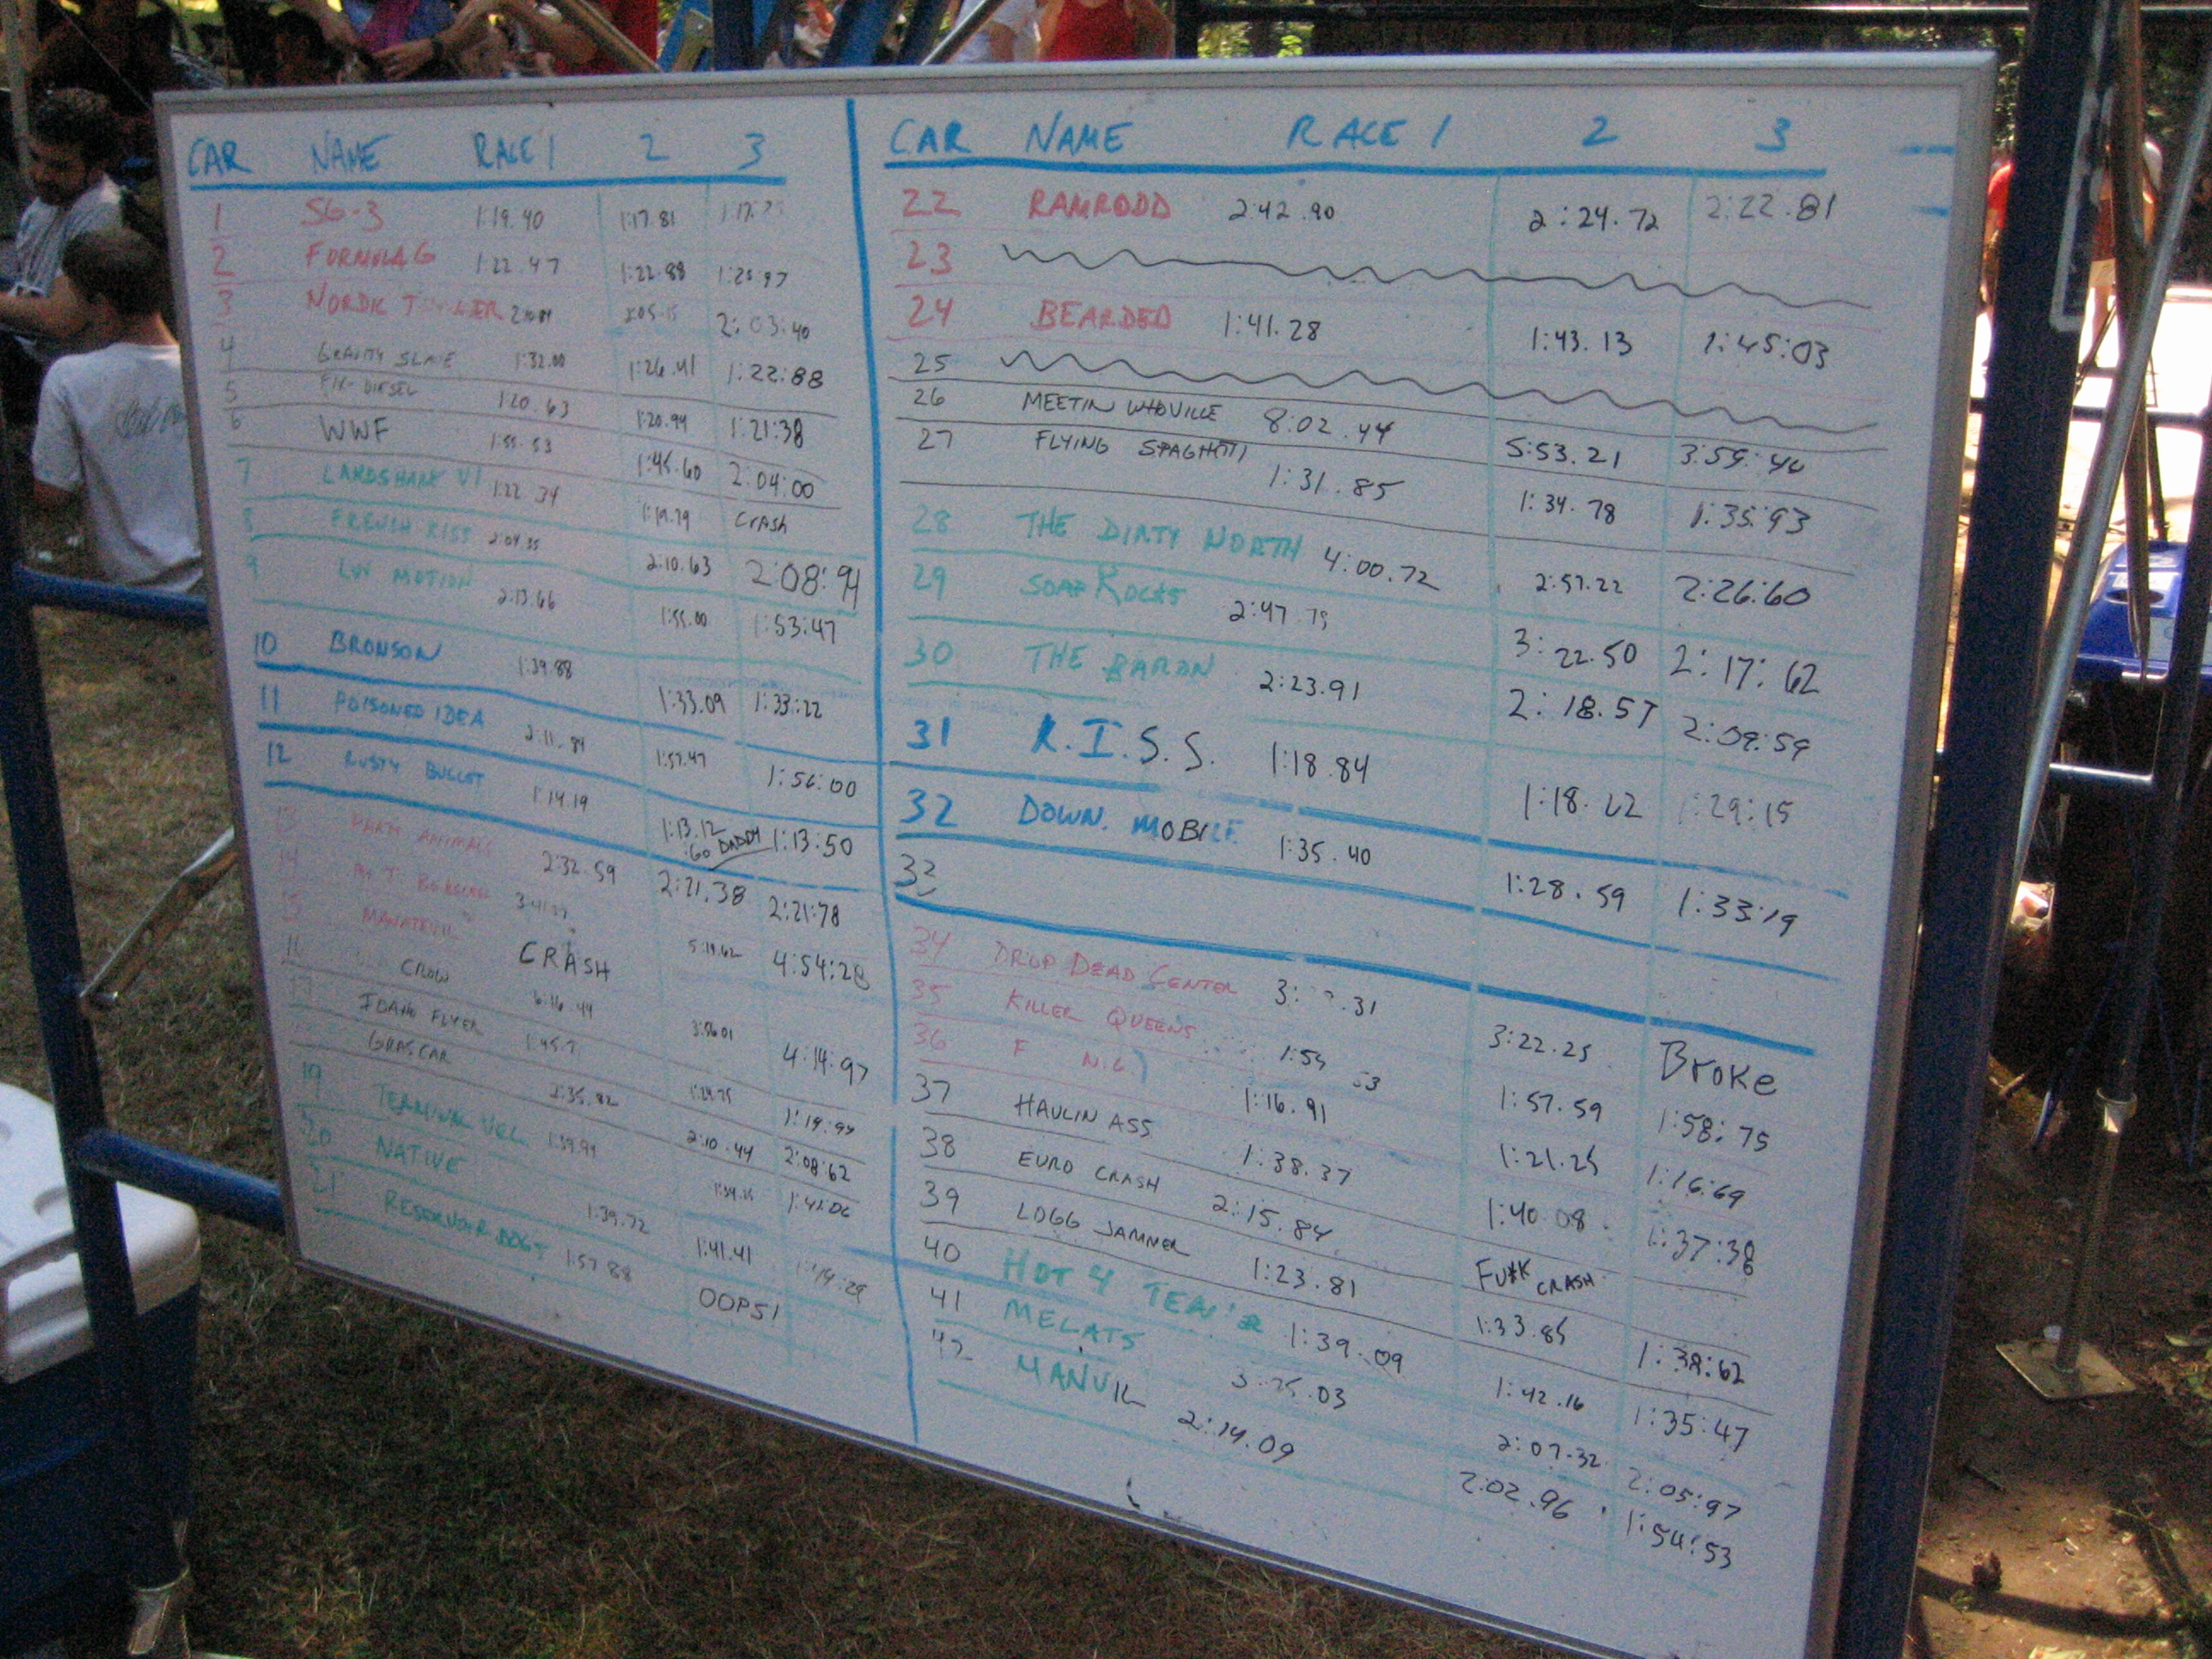 CAR NAME RACE 1 2 3
1 SG-3 1:19.40 1:17.81
2 FORMULA G 1:22.47 1:22.88 1:25:97
3 NORDIC 2:03:40
4 GRAVITY SLAVE 1:32.00 1:26.41 1:22:88
5 DIESEL 1:20.63 1:20.94 1:21:38
6 WWF 1:55.53 1:45.60 2:04:00
7 LANDSHARK VI 1:22.34 1:19.79 CRASH
8 FRENCH KISS 2:04.35 2:10.63 2:08:94
9 LUV MOTION 2:13.66 1:55.00 1:53:47
10 BRONSON 1:39.88 1:33.09 1:33:22
11 POISONED IDEA 2:11.84 1:57.47 1:56:00
12 RUSTY BULLET 1:14.19 1:13.12 1:13:50
GO DADDY
13 PARTY ANIMALS 2:32.59 2:21.38 2:21:78
14
15 CRASH 5:19.62 4:54:28
16 CROW 6:16.44 3:56.01 4:14:97
17 IDAHO FLYER 1:19:94
GRASCAR 2:35.82 2:10.44 2:08:62
19 TERMINAL VEL. 1:39.94 1:42:06
20 NATIVE 1:39.72 1:41.41
21 RESERVOIR DOGS 1:57.88 OOPS!
CAR NAME RACE 1 2 3
22 RAMRODD 2:42.90 2:24.72 2:22.81
23
24 BEARDED 1:41.28 1:43.13 1:45:03
25
26 MEETIN WHOVILLE 8:02.44 5:53.21 3:59:40
27 FLYING SPAGHETTI 1:31.85 1:34.78 1:35:93
28 THE DIRTY NORTH 4:00.72 2:57.22 2:26:60
29 SOAP ROCKS 2:47.75 3:22.50 2:17:62
30 THE BARON 2:23.91 2:18.57 2:09:59
31 K.I.S.S. 1:18.84 1:18.22 1:29:15
32 DOWN. MOBILE 1:35.40 1:28.59 1:33:19
33
34 DROP DEAD CENTER 3:22.25 Broke
35 KILLER QUEENS 1:57.59 1:58:75
36 F N.G. 1:16.91 1:21.25 1:16:69
37 HAULIN ASS 1:38.37 1:40.08 1:37:38
38 EURO CRASH 2:15.84 FU*K CRASH
39 LOGG JAMMER 1:23.81 1:33.85 1:38:62
40 HOT 4 TEACH'R 1:39.09 1:42.16 1:35:47
41 MELATS 2:07.32 2:05:97
42 MANVIL 2:14.09 2:02.96 1:54:53